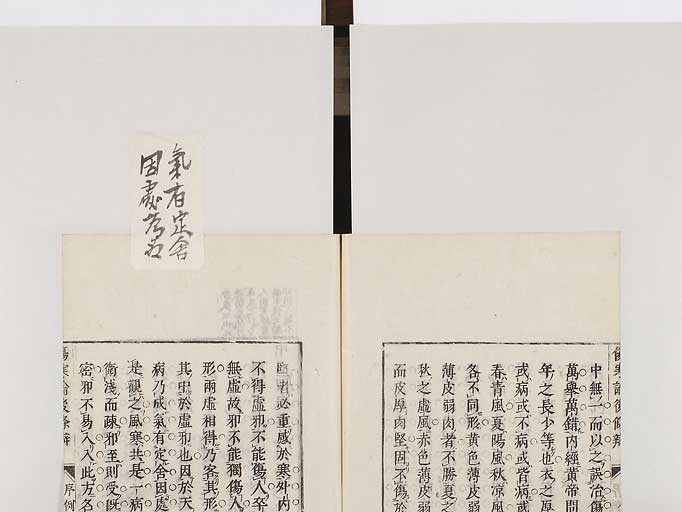 傷寒論後條辨 序例
中無一而以之誤治傷
萬舉萬錯內經黃帝問
年之長少等也衣之厚
或病或不病或皆病或
春青風夏陽風秋凉風
各不同形黃色薄皮弱
薄皮弱肉者不勝夏之
秋之虛風赤色薄皮弱
而皮厚肉堅固不傷於
氣有定舍
因處為名
堅者必重感於寒外內
不得虛邪不能傷人卒
無虛故邪不能獨傷人
形兩虛相得乃客其形
其中於虛邪也因於天
病乃成氣有定舍因處
是觀之風寒共是一病
衛淺而疎邪至則受既
密邪不易入入此方名
傷寒論後條辨 序例